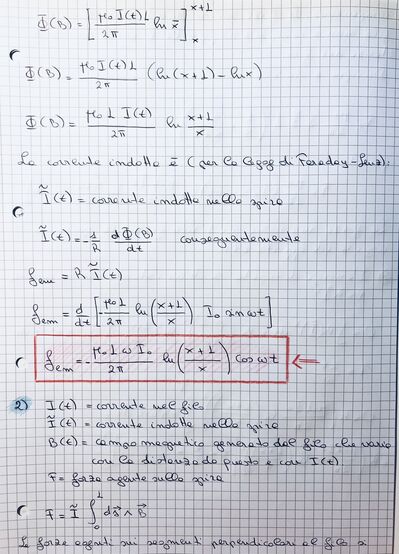 Φ(B) = [ μ₀ I(t) L / 2π ln x̄ ]ₓ^{x+L}
Φ(B) = μ₀ I(t) L / 2π ( ln(x+L) - ln x )
Φ(B) = μ₀ L I(t) / 2π ln x+L / x
La corrente indotta è ( per la legge di Faraday-Lenz):
Ĩ(t) = corrente indotta nella spira
Ĩ(t) = - 1/R dΦ(B)/dt conseguentemente
fem = R Ĩ(t)
fem = d/dt [ - μ₀ L / 2π ln( x+L / x ) I₀ sin ωt ]
fem = - μ₀ L ω I₀ / 2π ln( x+L / x ) cos ωt ⇐
2) I(t) = corrente nel filo
Ĩ(t) = corrente indotta nella spira
B(t) = campo magnetico generato dal filo che varia
con la distanza da questo e con I(t)
F = forza agente sulla spira
F = Ĩ ∫₀ᴸ ds⃗ ∧ B⃗
Le forze agenti sui segmenti perpendicolari al filo si